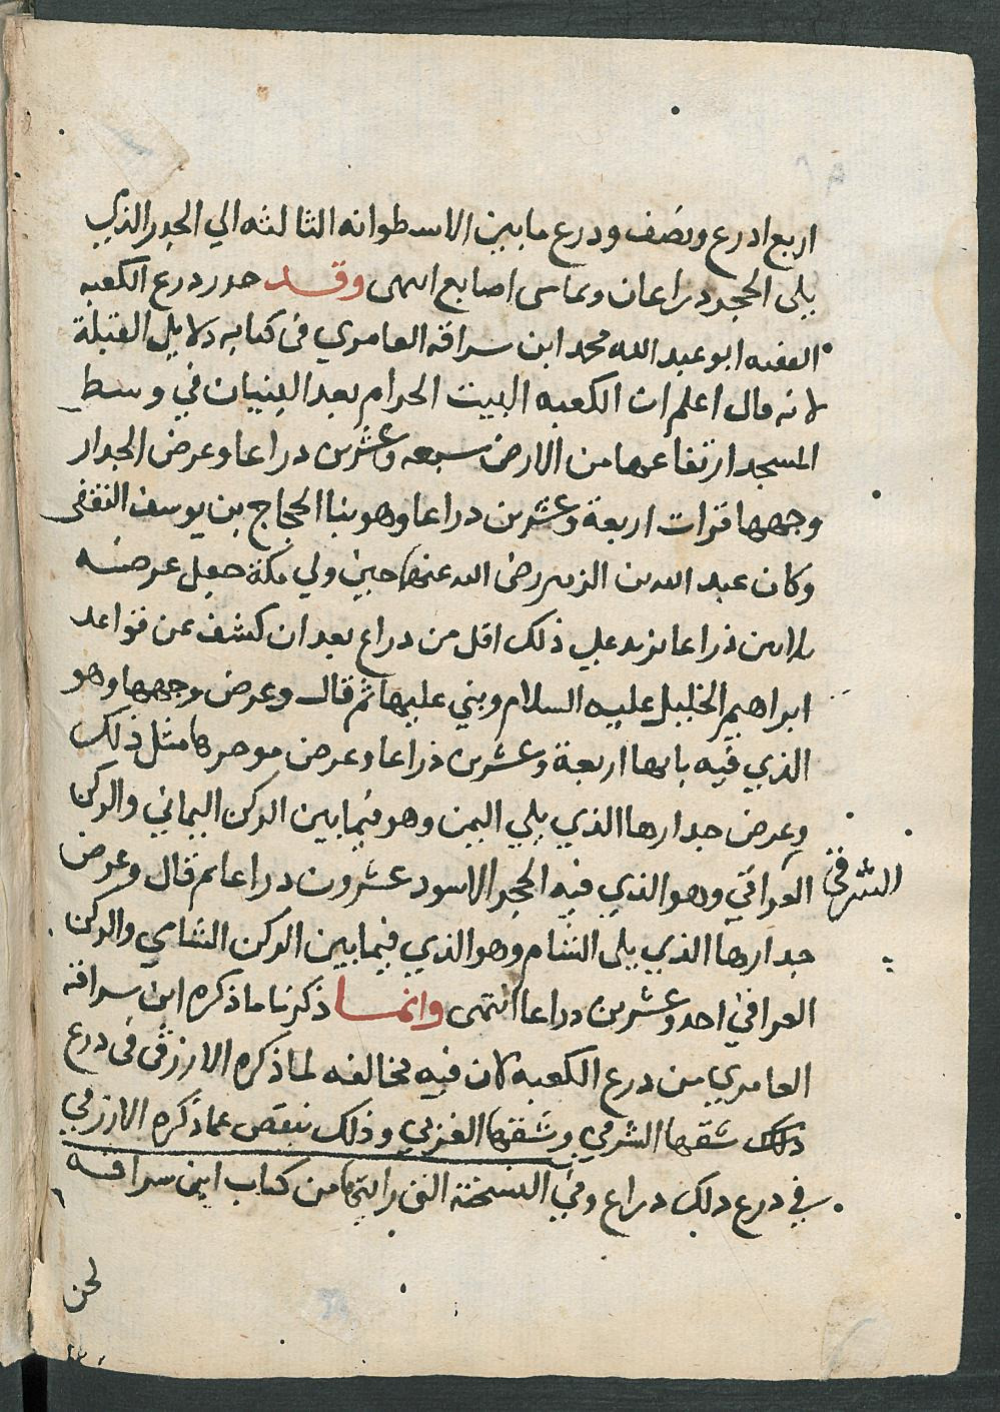 اربع ادرع ونصف ودرع ما بين الاسطوانه الثالثه الي الجدر الذي
يلي الحجر دراعان وثماني اصابع انتهى وقد حرر درع الكعبه
الفقيه ابو عبد الله محمد ابن سراقه العامري في كتابه دلايل القبلة
لانه قال اعلم ان الكعبه البيت الحرام بعد البنيان في وسط
المسجد ارتفاعها من الارض سبعه وعشرين دراعا وعرض الجدار
وجهها قرات اربعة وعشرين دراعا وهو بنا الحجاج بن يوسف الثقفى
وكان عبد الله بن الزبير رضى الله عنهما حين ولي مكة جعل عرضه
ثلاثين ذراعا يزيد علي ذلك اقل من دراع بعد ان كشف عن قواعد
ابراهيم الخليل عليه السلام وبني عليها ثم قال وعرض وجهها وهو
الذي فيه بابها اربعة وعشرين ذراعا وعرض موخرها مثل ذلك
وعرض جدارها الذي يلي اليمن وهو فيما بين الركن اليماني والركن
العراقي وهو الذي فيه الحجر الاسود عشرون دراعا ثم قال وعرض
الشرقي
جدارها الذي يلى الشام وهو الذي فيما بين الركن الشامي والركن
العراقي احد وعشرين دراعا انتهى وانما ذكرنا ما ذكره ابن سراقه
العامري من درع الكعبه لان فيه مخالفه لما ذكره الارزقى فى درع
ذلك شقها الشرقي وشقها الغربي وذلك ينقص عما ذكره الارزقي
في درع دلك دراع وفي النسخة التى رايتها من كتاب ابن سراقه
لحن